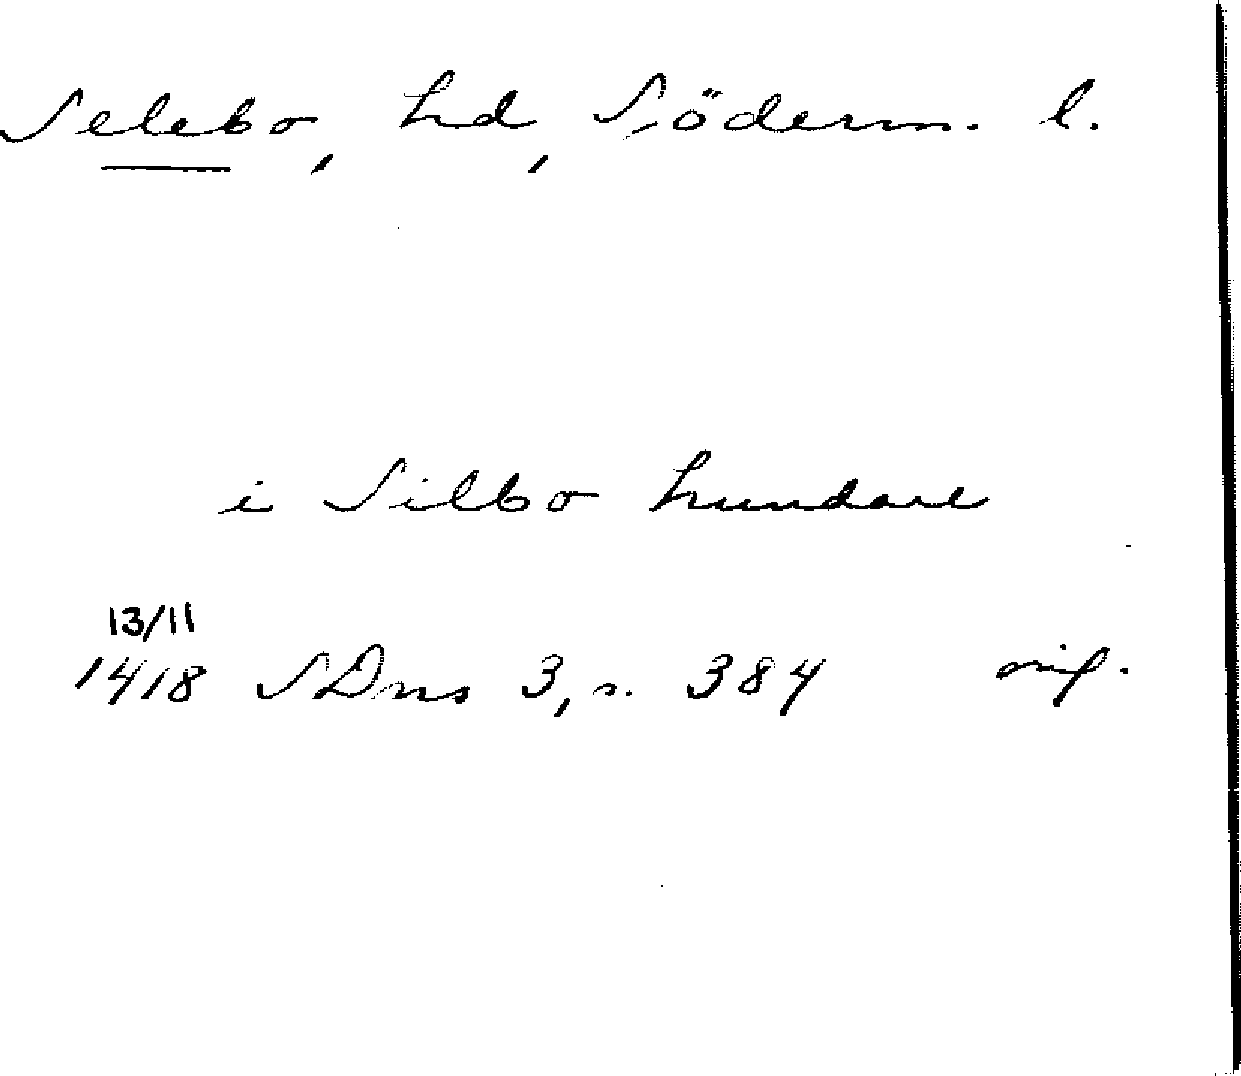 Selebo, hd, Söderm. l.
i Silbo hundare
13/11
1418 SDns 3, s. 384 orig.